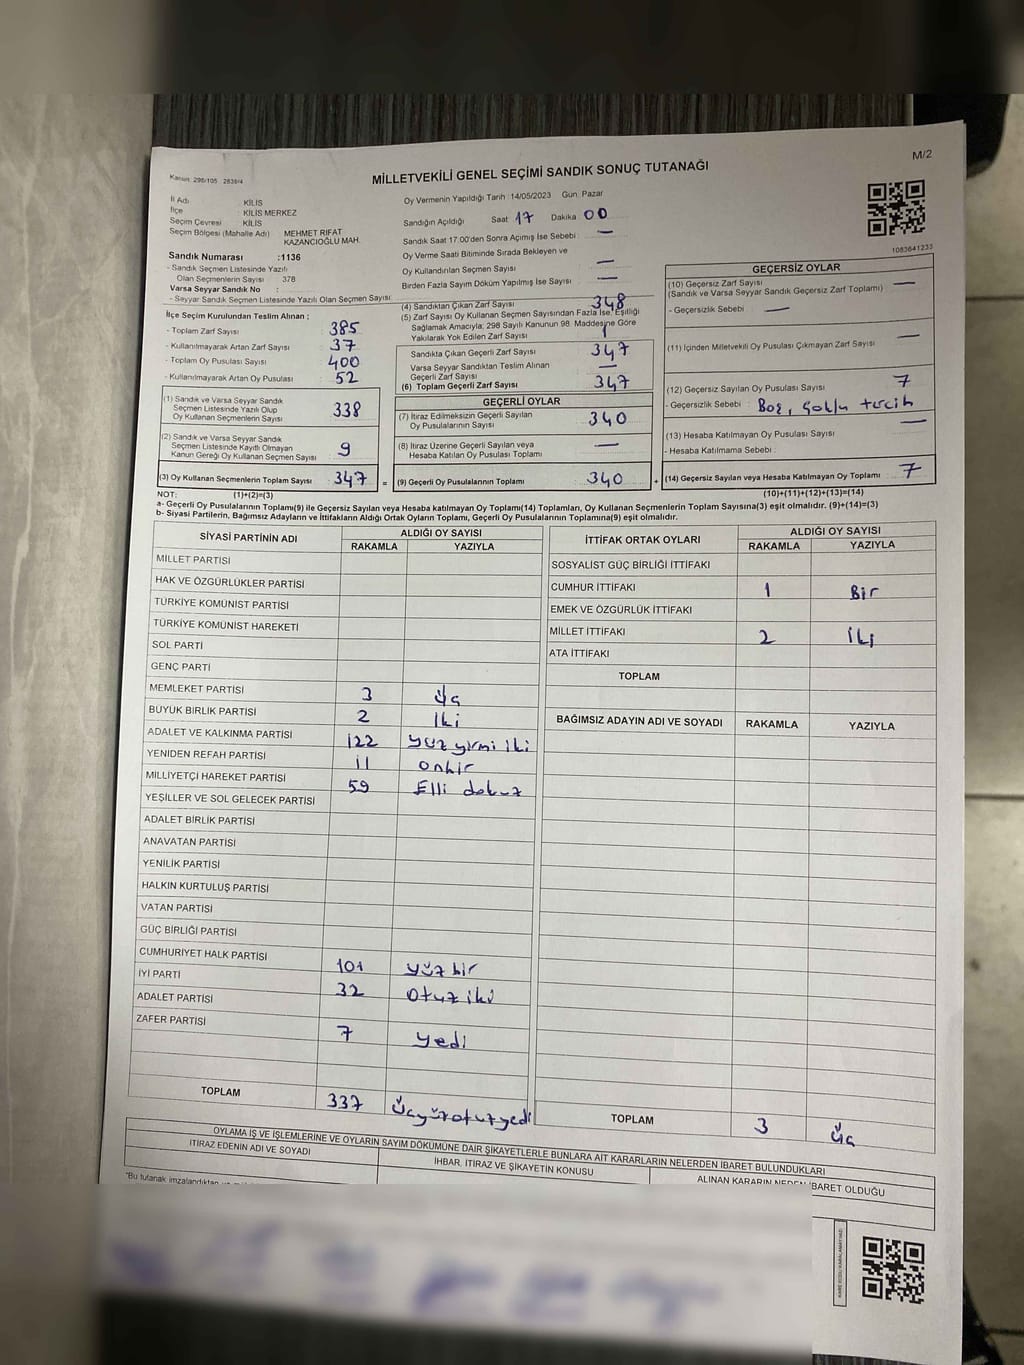 M/2
Kanun: 298/105 2839/4
MİLLETVEKİLİ GENEL SEÇİMİ SANDIK SONUÇ TUTANAĞI
İl Adı : KİLİS
İlçe : KİLİS MERKEZ
Seçim Çevresi : KİLİS
Seçim Bölgesi (Mahalle Adı) : MEHMET RIFAT KAZANCIOĞLU MAH.
Sandık Numarası :1136
- Sandık Seçmen Listesinde Yazılı
Olan Seçmenlerin Sayısı : 378
Varsa Seyyar Sandık No :
- Seyyar Sandık Seçmen Listesinde Yazılı Olan Seçmen Sayısı:
Oy Vermenin Yapıldığı Tarih :14/05/2023 Gün: Pazar
Sandığın Açıldığı Saat 17 Dakika 00
Sandık Saat 17:00'den Sonra Açımış İse Sebebi : —
Oy Verme Saati Bitiminde Sırada Bekleyen ve
Oy Kullandırılan Seçmen Sayısı : —
Birden Fazla Sayım Döküm Yapılmış İse Sayısı : —
1083641233
İlçe Seçim Kurulundan Teslim Alınan ;
- Toplam Zarf Sayısı : 385
- Kullanılmayarak Artan Zarf Sayısı : 37
- Toplam Oy Pusulası Sayısı : 400
- Kullanılmayarak Artan Oy Pusulası : 52
(1) Sandık ve Varsa Seyyar Sandık
Seçmen Listesinde Yazılı Olup
Oy Kullanan Seçmenlerin Sayısı : 338
(2) Sandık ve Varsa Seyyar Sandık
Seçmen Listesinde Kayıtlı Olmayan
Kanun Gereği Oy Kullanan Seçmen Sayısı : 9
(3) Oy Kullanan Seçmenlerin Toplam Sayısı : 347 =
(4) Sandıktan Çıkan Zarf Sayısı : 348
(5) Zarf Sayısı Oy Kullanan Seçmen Sayısından Fazla İse, Eşitliği
Sağlamak Amacıyla; 298 Sayılı Kanunun 98. Maddesine Göre
Yakılarak Yok Edilen Zarf Sayısı : 1
Sandıkta Çıkan Geçerli Zarf Sayısı : 347
Varsa Seyyar Sandıktan Teslim Alınan
Geçerli Zarf Sayısı : —
(6) Toplam Geçerli Zarf Sayısı : 347
GEÇERLİ OYLAR
(7) İtiraz Edilmeksizin Geçerli Sayılan
Oy Pusulalarının Sayısı : 340
(8) İtiraz Üzerine Geçerli Sayılan veya
Hesaba Katılan Oy Pusulası Toplamı : —
(9) Geçerli Oy Pusulalarının Toplamı : 340 +
GEÇERSİZ OYLAR
(10) Geçersiz Zarf Sayısı : —
(Sandık ve Varsa Seyyar Sandık Geçersiz Zarf Toplamı)
- Geçersizlik Sebebi : —
(11) İçinden Milletvekili Oy Pusulası Çıkmayan Zarf Sayısı : —
(12) Geçersiz Sayılan Oy Pusulası Sayısı : 7
- Geçersizlik Sebebi : Boş, Çoklu tercih
(13) Hesaba Katılmayan Oy Pusulası Sayısı : —
- Hesaba Katılmama Sebebi :
(14) Geçersiz Sayılan veya Hesaba Katılmayan Oy Toplamı : 7
NOT: (1)+(2)=(3) (10)+(11)+(12)+(13)=(14)
a- Geçerli Oy Pusulalarının Toplamı(9) ile Geçersiz Sayılan veya Hesaba katılmayan Oy Toplamı(14) Toplamları, Oy Kullanan Seçmenlerin Toplam Sayısına(3) eşit olmalıdır. (9)+(14)=(3)
b- Siyasi Partilerin, Bağımsız Adayların ve İttifakların Aldığı Ortak Oyların Toplamı, Geçerli Oy Pusulalarının Toplamına(9) eşit olmalıdır.
SİYASİ PARTİNİN ADI ALDIĞI OY SAYISI
RAKAMLA YAZIYLA
MİLLET PARTİSİ
HAK VE ÖZGÜRLÜKLER PARTİSİ
TÜRKİYE KOMÜNİST PARTİSİ
TÜRKİYE KOMÜNİST HAREKETİ
SOL PARTİ
GENÇ PARTİ
MEMLEKET PARTİSİ 3 Üç
BÜYÜK BİRLİK PARTİSİ 2 İki
ADALET VE KALKINMA PARTİSİ 122 yüz yirmi iki
YENİDEN REFAH PARTİSİ 11 onbir
MİLLİYETÇİ HAREKET PARTİSİ 59 Elli dokuz
YEŞİLLER VE SOL GELECEK PARTİSİ
ADALET BİRLİK PARTİSİ
ANAVATAN PARTİSİ
YENİLİK PARTİSİ
HALKIN KURTULUŞ PARTİSİ
VATAN PARTİSİ
GÜÇ BİRLİĞİ PARTİSİ
CUMHURİYET HALK PARTİSİ 101 yüz bir
İYİ PARTİ 32 Otuz iki
ADALET PARTİSİ
ZAFER PARTİSİ 7 yedi
TOPLAM 337 Üçyüzotuzyedi
İTTİFAK ORTAK OYLARI ALDIĞI OY SAYISI
RAKAMLA YAZIYLA
SOSYALİST GÜÇ BİRLİĞİ İTTİFAKI
CUMHUR İTTİFAKI 1 Bir
EMEK VE ÖZGÜRLÜK İTTİFAKI
MİLLET İTTİFAKI 2 İki
ATA İTTİFAKI
TOPLAM
BAĞIMSIZ ADAYIN ADI VE SOYADI RAKAMLA YAZIYLA
TOPLAM 3 Üç
OYLAMA İŞ VE İŞLEMLERİNE VE OYLARIN SAYIM DÖKÜMÜNE DAİR ŞİKAYETLERLE BUNLARA AİT KARARLARIN NELERDEN İBARET BULUNDUKLARI
İTİRAZ EDENİN ADI VE SOYADI İHBAR, İTİRAZ VE ŞİKAYETİN KONUSU ALINAN KARARIN NEDEN İBARET OLDUĞU
"Bu tutanak imzalandıktan